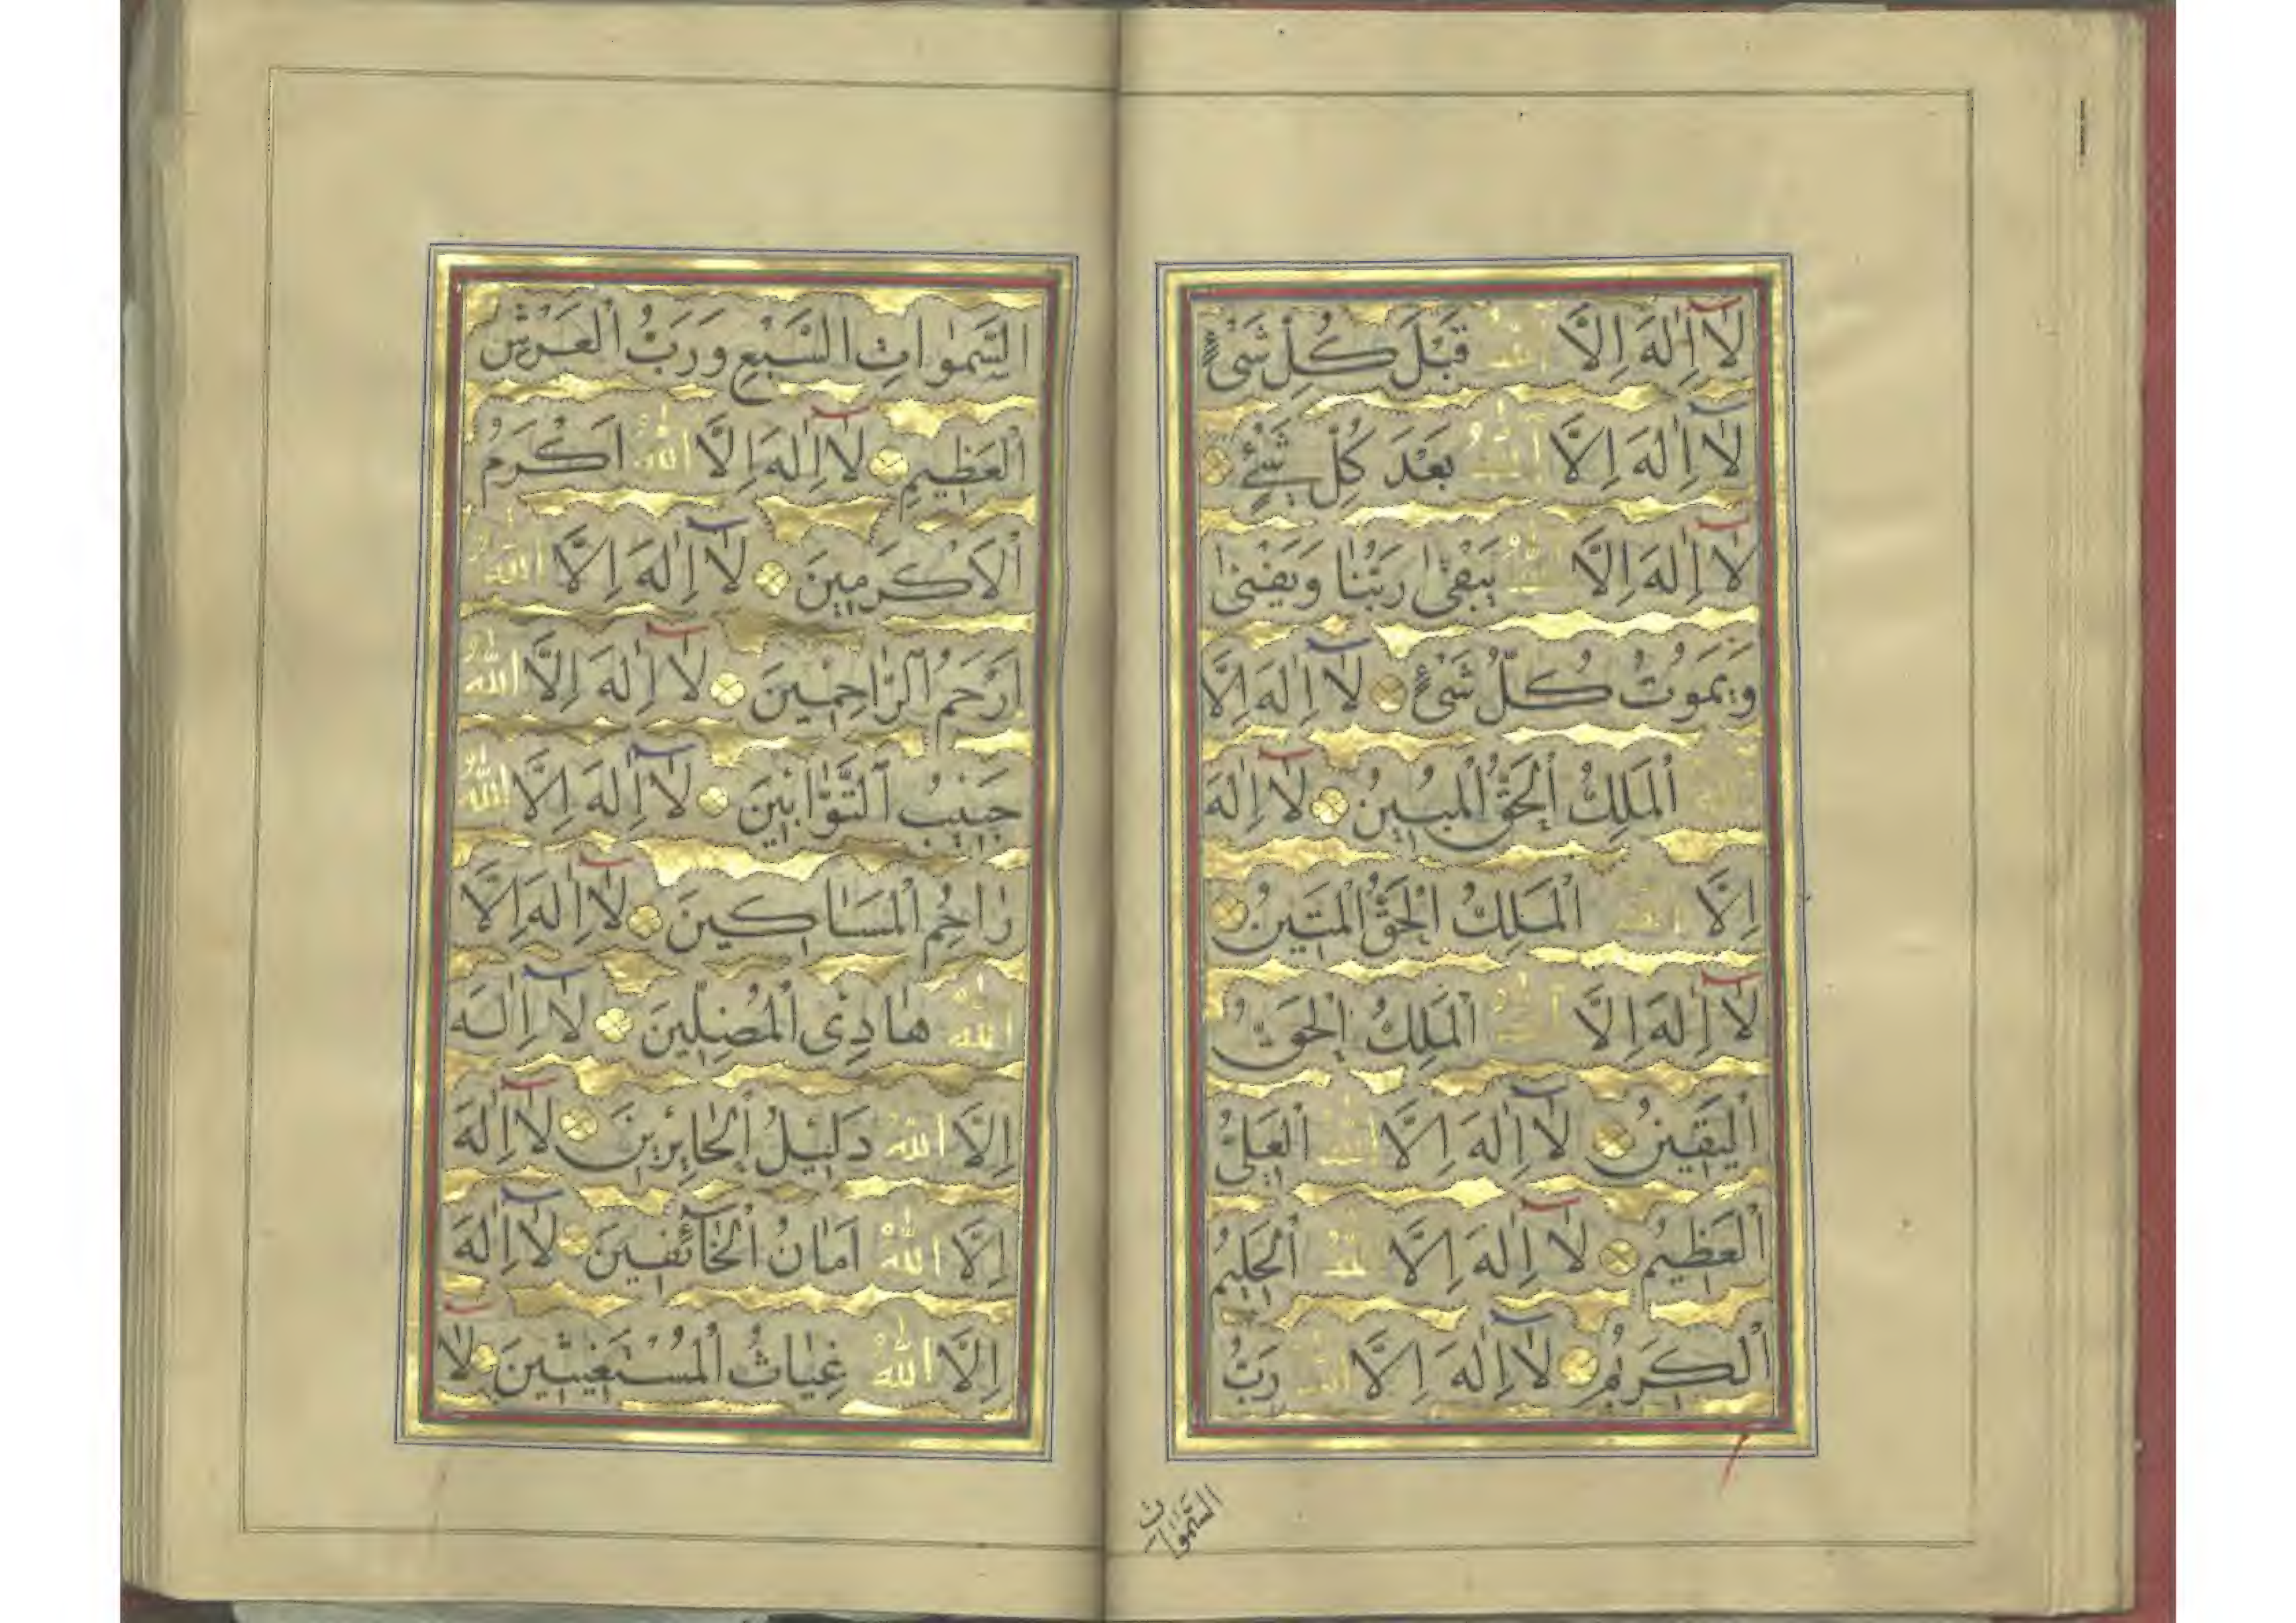 لَا اِلٰهَ اِلَّا اللّٰهُ قَبْلَ كُلِّ شَىْءٍ
لَا اِلٰهَ اِلَّا اللّٰهُ بَعْدَ كُلِّ شَىْءٍ
لَا اِلٰهَ اِلَّا اللّٰهُ يَبْقٰى رَبُّنَا وَيَفْنٰى
وَيَمُوتُ كُلُّ شَىْءٍ لَا اِلٰهَ اِلَّا
اللّٰهُ الْمَلِكُ الْحَقُّ الْمُبِينُ لَا اِلٰهَ
اِلَّا اللّٰهُ الْمَلِكُ الْحَقُّ الْمَتِينُ
لَا اِلٰهَ اِلَّا اللّٰهُ الْمَلِكُ الْحَقُّ
الْيَقِينُ لَا اِلٰهَ اِلَّا اللّٰهُ الْعَلِىُّ
الْعَظِيمُ لَا اِلٰهَ اِلَّا اللّٰهُ الْحَلِيمُ
الْكَرِيمُ لَا اِلٰهَ اِلَّا اللّٰهُ رَبُّ
السَّمٰوَاتِ
السَّمٰوَاتِ السَّبْعِ وَرَبُّ الْعَرْشِ
الْعَظِيمِ لَا اِلٰهَ اِلَّا اللّٰهُ اَكْرَمُ
الْاَكْرَمِينَ لَا اِلٰهَ اِلَّا اللّٰهُ
اَرْحَمُ الرَّاحِمِينَ لَا اِلٰهَ اِلَّا اللّٰهُ
حَبِيبُ التَّوَّابِينَ لَا اِلٰهَ اِلَّا اللّٰهُ
رَاحِمُ الْمَسَاكِينَ لَا اِلٰهَ اِلَّا
اللّٰهُ هَادِى الْمُضِلِّينَ لَا اِلٰهَ
اِلَّا اللّٰهُ دَلِيلُ الْحَائِرِينَ لَا اِلٰهَ
اِلَّا اللّٰهُ اَمَانُ الْخَائِفِينَ لَا اِلٰهَ
اِلَّا اللّٰهُ غِيَاثُ الْمُسْتَغِيثِينَ لَا